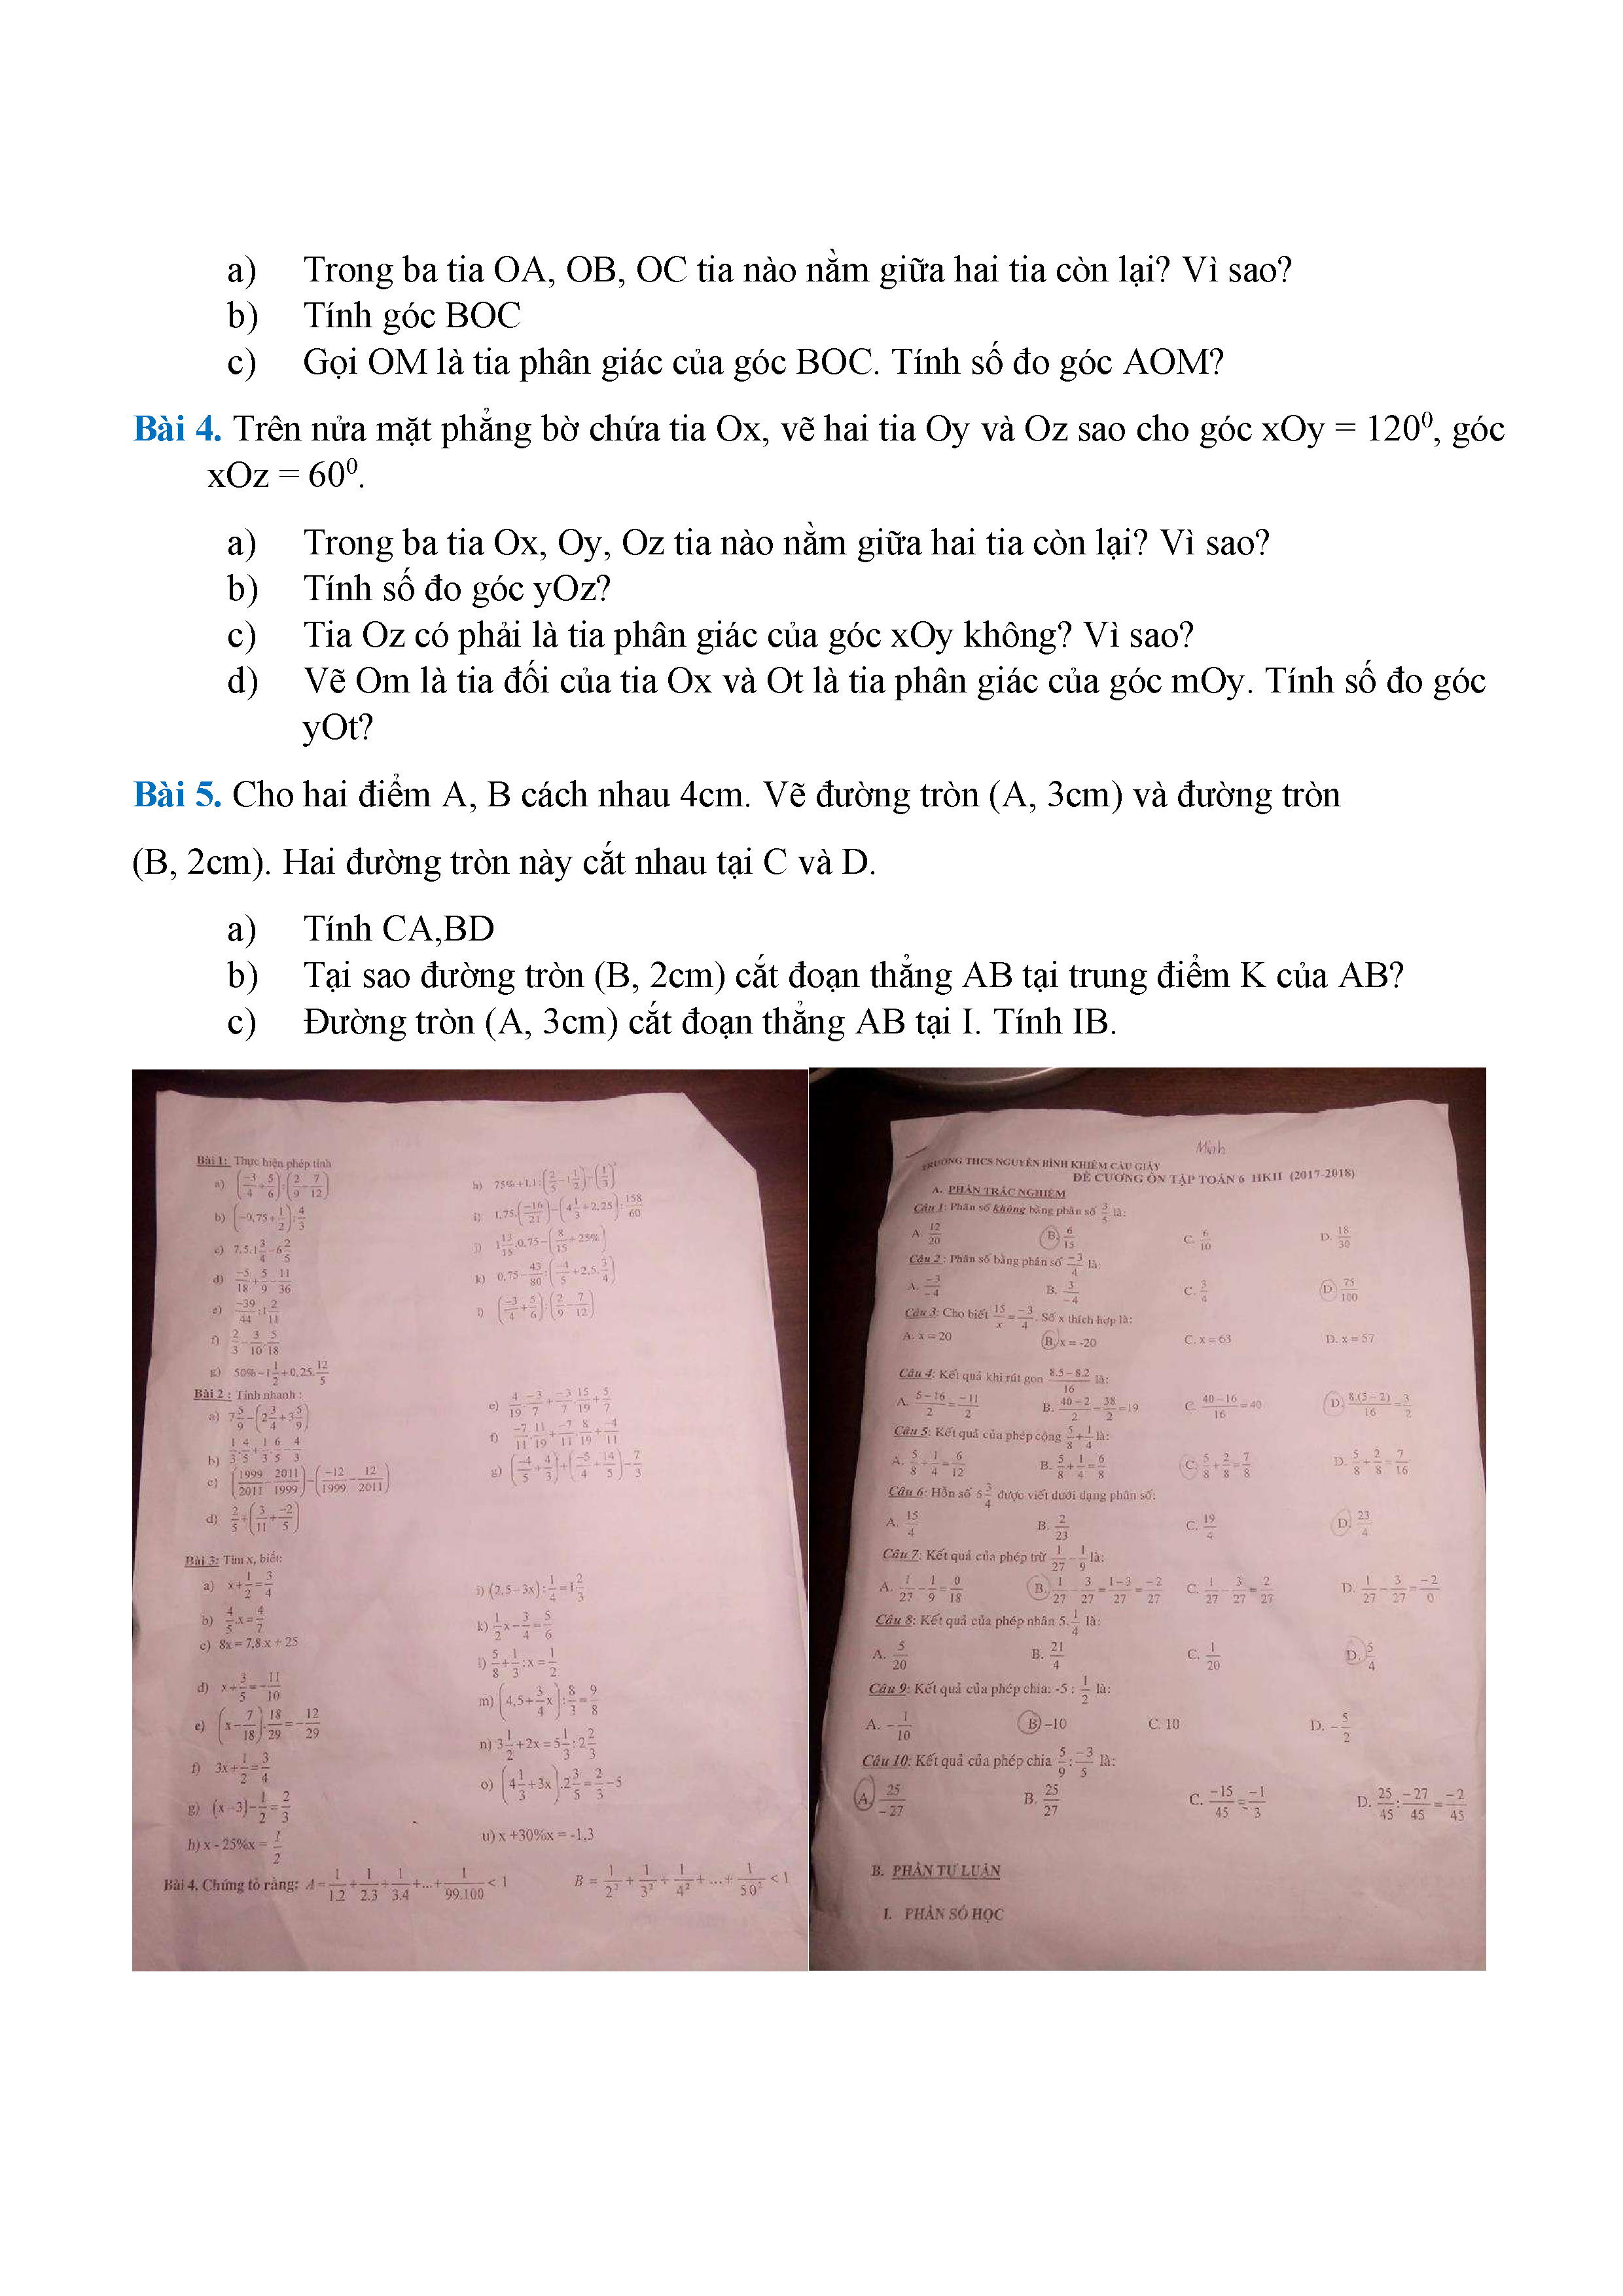 a) Trong ba tia OA, OB, OC tia nào nằm giữa hai tia còn lại? Vì sao?
b) Tính góc BOC
c) Gọi OM là tia phân giác của góc BOC. Tính số đo góc AOM?
Bài 4. Trên nửa mặt phẳng bờ chứa tia Ox, vẽ hai tia Oy và Oz sao cho góc xOy = 120⁰, góc
xOz = 60⁰.
a) Trong ba tia Ox, Oy, Oz tia nào nằm giữa hai tia còn lại? Vì sao?
b) Tính số đo góc yOz?
c) Tia Oz có phải là tia phân giác của góc xOy không? Vì sao?
d) Vẽ Om là tia đối của tia Ox và Ot là tia phân giác của góc mOy. Tính số đo góc
yOt?
Bài 5. Cho hai điểm A, B cách nhau 4cm. Vẽ đường tròn (A, 3cm) và đường tròn
(B, 2cm). Hai đường tròn này cắt nhau tại C và D.
a) Tính CA,BD
b) Tại sao đường tròn (B, 2cm) cắt đoạn thẳng AB tại trung điểm K của AB?
c) Đường tròn (A, 3cm) cắt đoạn thẳng AB tại I. Tính IB.
Bài 1: Thực hiện phép tính
a) (-3/4 + 5/6) : (2/9 - 7/12)
b) (-0,75 + 1/2) : 4/3
c) 7,5.1 3/4 - 6 2/5
d) -5/18 + 5/9 - 11/36
e) -39/44 : 1 2/11
f) 2/3 - 3/10 . 5/18
g) 50% - 1 1/2 + 0,25. 12/5
i) 1,75.(-16/21) - (4 1/3 + 2,25) : 158/60
j) 1 13/15 .0,75 - (8/15 + 25%)
k) 0,75 - 43/80 : (-4/5 + 2,5. 3/4)
l) (-3/4 + 5/6) : (2/9 - 7/12)
Bài 2 : Tính nhanh :
a) 7 5/9 - (2 3/4 + 3 5/9)
b) 1/3 . 4/5 + 1/3 . 6/5 - 4/3
c) (1999/2011 - 2011/1999) - (-12/1999 - 12/2011)
d) 2/5 + (3/11 + -2/5)
e) 4/19 . -3/7 + -3/7 . 15/19 + 5/7
f) -7/11 . 11/19 + -7/11 . 8/19 + -4/11
g) (-4/5 + 4/3) + (-5/4 + 14/5) - 7/3
Bài 3: Tìm x, biết:
a) x + 1/2 = 3/4
b) 4/5 . x = 4/7
c) 8x = 7,8.x + 25
d) x + 3/5 = -11/10
e) (x - 7/18) . 18/29 = -12/29
f) 3x + 1/2 = 3/4
g) (x-3) - 1/2 = 2/3
h) x - 25%x = 1/2
i) (2,5 - 3x) : 1/4 = 1 2/3
k) 1/2 x - 3/4 = 5/6
l) 5/8 + 1/3 : x = 1/2
m) (4,5 + 3/4 x) : 8/3 = 9/8
n) 3 1/2 + 2x = 5 1/3 : 2 2/3
o) (4 1/3 + 3x) . 2 3/5 = 2/3 - 5
u) x +30%x = -1,3
Bài 4. Chứng tỏ rằng: A = 1/1.2 + 1/2.3 + 1/3.4 + ... + 1/99.100 < 1 B = 1/2² + 1/3² + 1/4² + ... + 1/50² < 1
Minh
TRƯỜNG THCS NGUYỄN BỈNH KHIÊM CẦU GIẤY
ĐỀ CƯƠNG ÔN TẬP TOÁN 6 HKII (2017-2018)
A. PHẦN TRẮC NGHIỆM
Câu 1: Phân số không bằng phân số 3/5 là:
A. 12/20 B. 6/15 C. 6/10 D. 18/30
Câu 2 : Phân số bằng phân số -3/4 là:
A. -3/-4 B. 3/-4 C. 3/4 D. 75/100
Câu 3: Cho biết 15/x = -3/4. Số x thích hợp là:
A. x = 20 B. x = -20 C. x = 63 D. x = 57
Câu 4: Kết quả khi rút gọn 8.5-8.2/16 là:
A. 5-16/2 = -11/2 B. 40-2/2 = 38/2 = 19 C. 40-16/16 = 40 D. 8.(5-2)/16 = 3/2
Câu 5: Kết quả của phép cộng 5/8 + 1/4 là:
A. 5/8 + 1/4 = 6/12 B. 5/8 + 1/4 = 6/8 C. 5/8 + 2/8 = 7/8 D. 5/8 + 2/8 = 7/16
Câu 6: Hỗn số 5 3/4 được viết dưới dạng phân số:
A. 15/4 B. 2/23 C. 19/4 D. 23/4
Câu 7: Kết quả của phép trừ 1/27 - 1/9 là:
A. 1/27 - 1/9 = 0/18 B. 1/27 - 3/27 = 1-3/27 = -2/27 C. 1/27 - 3/27 = 2/27 D. 1/27 - 3/27 = -2/0
Câu 8: Kết quả của phép nhân 5. 1/4 là:
A. 5/20 B. 21/4 C. 1/20 D. 5/4
Câu 9: Kết quả của phép chia: -5 : 1/2 là:
A. -1/10 B. -10 C. 10 D. -5/2
Câu 10: Kết quả của phép chia 5/9 : -3/5 là:
A. 25/-27 B. 25/27 C. -15/45 = -1/3 D. 25/45 : -27/45 = -2/45
B. PHẦN TỰ LUẬN
I. PHẦN SỐ HỌC